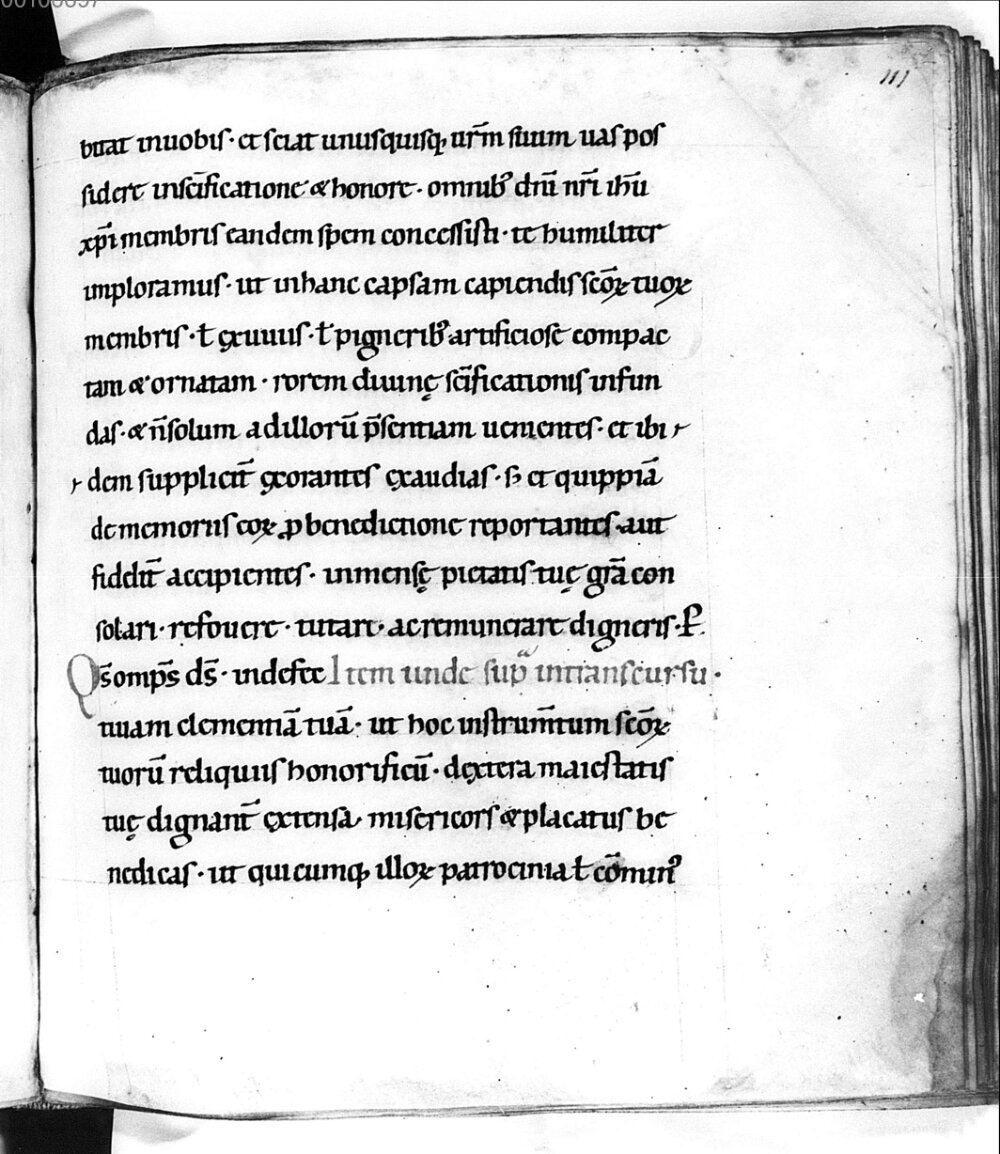 111
bitat inuobis· et sciat unusquisq; ur̄m suum uas pos
sidere insc̄ificatione & honore· omnibꝰ dn̄i nr̄i ih̄u
xp̄i membris eandem spem concessisti· te humiliter
imploramus· ut inhanc capsam capiendis sc̄oꝝ tuoꝝ
membris· ł exuuiis· ł pigneribꝰ artificiose compac
tam & ornatam· rorem diuinę sc̄ificationis infun
das· & n̄solum adillorū p̄sentiam uenientes· et ibi
dem suppliciť exorantes exaudias· s; et quippiā
de memoriis eoꝝ ꝓ benedictione reportantes· aut
fideliť accipientes· inmensę pietatis tuę grā con
solari· refouere· tutari· ac remunerare digneris· P̲.
Qs̄ omp̄s ds̄· indefec Item unde sup̄ᵃ intranscursu·
tiuam clementiā tuā· ut hoc instrum̄tum sc̄oꝝ
tuorū reliquiis honorificū· dextera maiestatis
tuę dignanť extensa· misericors & placatus be
nedicas· ut quicumq; illoꝝ patrocinia ł cōmunꝰ